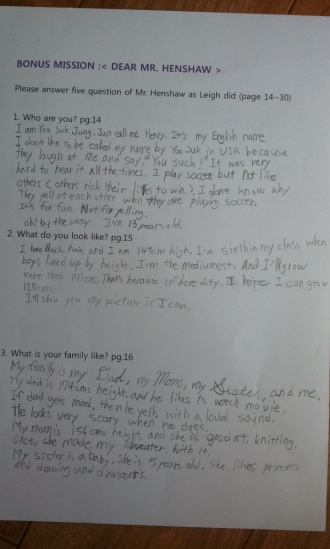 BONUS MISSION :< DEAR MR. HENSHAW >
Please answer five question of Mr. Henshaw as Leigh did (page 14~30)
1. Who are you? pg.14
I am Yoo Suk Jung. Just call me Henry. It's my English name.
I don't like to be called my name by Yoo Suk in USA because
they laugh at me and say, "You suck!" It was very
hard to hear it all the times. I play soccer but not like
others (others risk their lifes to win). I don't know why
they yell at each other when they are playing soccer.
It's for fun. Not for yelling.
oh! by the way. I'm 13 years old.
2. What do you look like? pg.15
I have black hair and I am 149cm high. I'm sixth in my class when
boys lined up by height, I'm the mediumest. And I'll grow
more than 10cm. That's because of heredity. I hope I can grow
180cm.
I'll show you my picture If I can.
3. What is your family like? pg.16
My family is my Dad, my Mom, my Sister, and me.
My dad is 174cms height, and he likes to watch movie.
If dad gets mad, then he yells with a loud sound.
He looks very scary when he does.
My mom is 156cms height, and she is good at knitting.
Once, she made my sweater with it.
My sister is a baby. She is 5 years old. she likes princess
and drawing and dinosaurs.